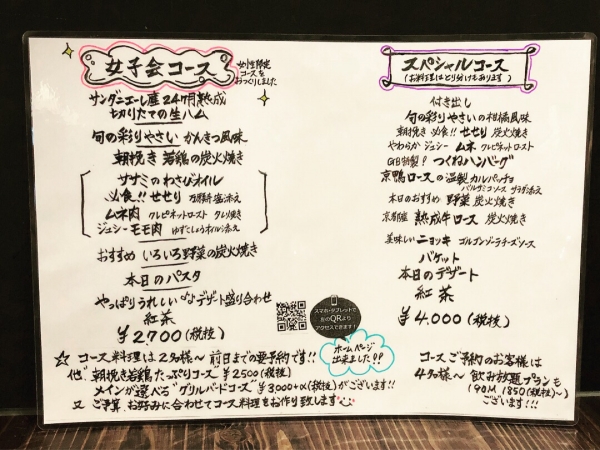 女子会コース
女性限定
コースを
おつくりしました
サンダニエーレ産24ヶ月熟成
切りたての生ハム
旬の彩りやさい かんきつ風味
朝挽き 若鶏の炭火焼き
ササミのわさびオイル
必食!! せせり 万願寺塩添え
ムネ肉 クレピネットロスト タレ焼き
ジューシーモモ肉 ゆずこしょうオイル添え
おすすめ いろいろ野菜の炭火焼き
本日のパスタ
やっぱりうれしい♪デザート盛り合わせ
紅茶
¥2700(税抜)
スマホ・タブレットで
左のQRより
アクセスできます!
ホームページ
出来ました!?
☆ コース料理は2名様〜前日までの要予約です!!
他 朝挽き若鶏たっぷりコース ¥2500(税抜)
メインが選べる"グリルバードコース"¥3000+α(税抜)がございます!!
又 ご予算、お好みに合わせてコース料理をお作り致します
スペシャルコース
(お料理はとり分けてあります)
付き出し
旬の彩りやさいの柑橘風味
朝挽き 必食!! せせり 炭火焼き
やわらか ジューシー ムネ クレピネットロスト
GB特製! つくねハンバーグ
京鴨ロースの温製カルパッチョ
バルサミコソース サラダ添え
本日のおすすめ 野菜 炭火焼き
京都産 熟成牛ロース 炭火焼き
美味しいニョッキ ゴルゴンゾーラチーズソース
バケット
本日のデザート
紅茶
¥4,000(税抜)
コースご予約のお客様は
4名様〜飲み放題プランも
(90M 1850(税抜)〜)
ございます!!!